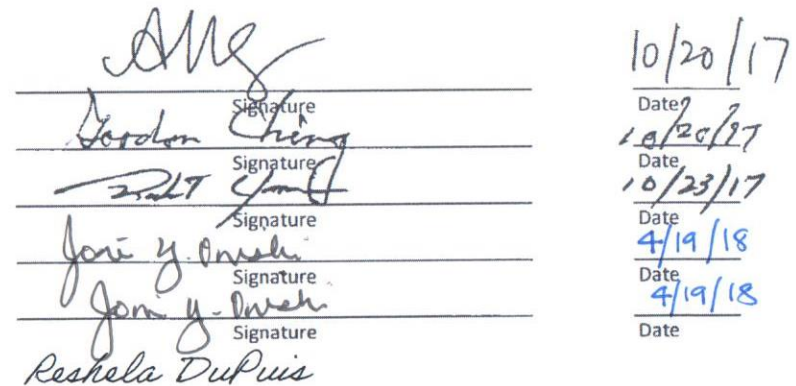 10/20/17
Signature Date
Gordon Ching 10/20/17
Signature Date
10/23/17
Signature Date
Joni Y. Onishi 4/19/18
Signature Date
Joni Y. Onishi 4/19/18
Signature Date
Reshela DuPuis